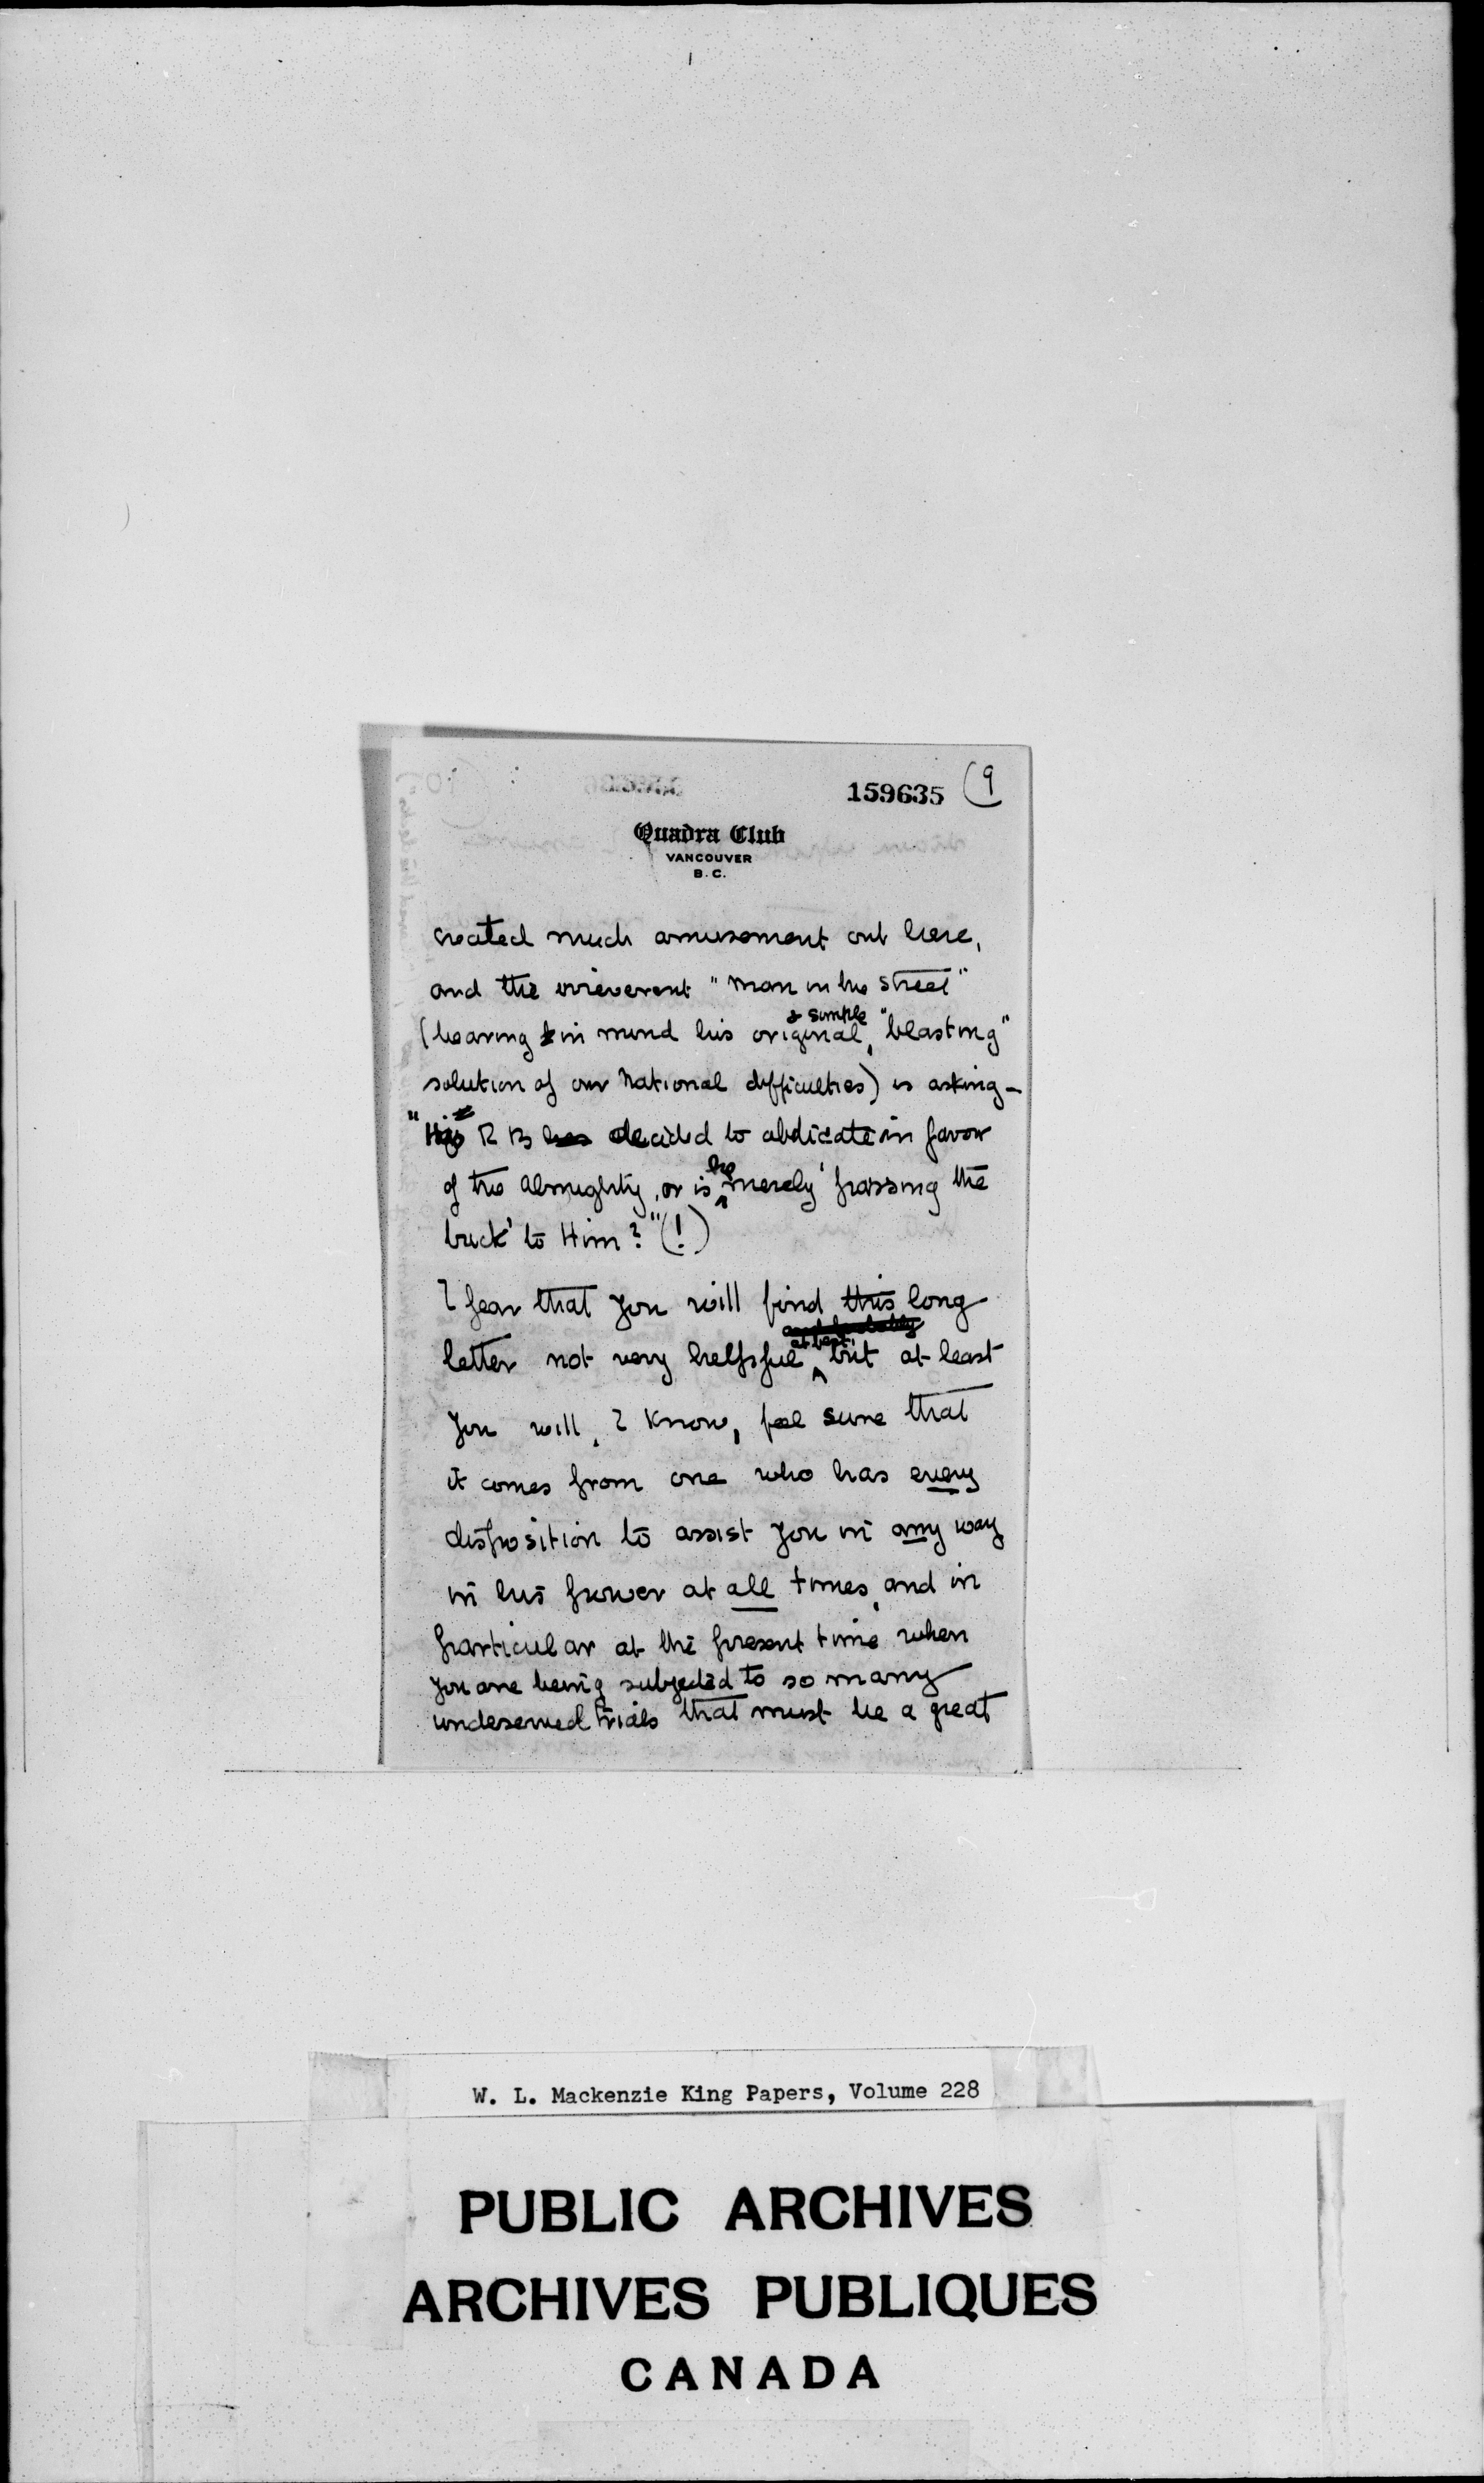 159635 (9
Quadra Club
VANCOUVER
B. C.
created much amusement out here,
and the irreverent "man in the street"
(bearing in mind his original & simple "blasting"
solution of our National difficulties) is asking—
"Has R B decided to abdicate in favor
of the Almighty, or is he merely 'passing the
buck' to Him?" (!)
I fear that you will find this long
letter not very helpful at best, but at least
you will, I know, feel sure that
it comes from one who has every
disposition to assist you in any way
in his power at all times, and in
particular at the present time when
you are being subjected to so many
undeserved trials that must be a great
W. L. Mackenzie King Papers, Volume 228
PUBLIC ARCHIVES
ARCHIVES PUBLIQUES
CANADA